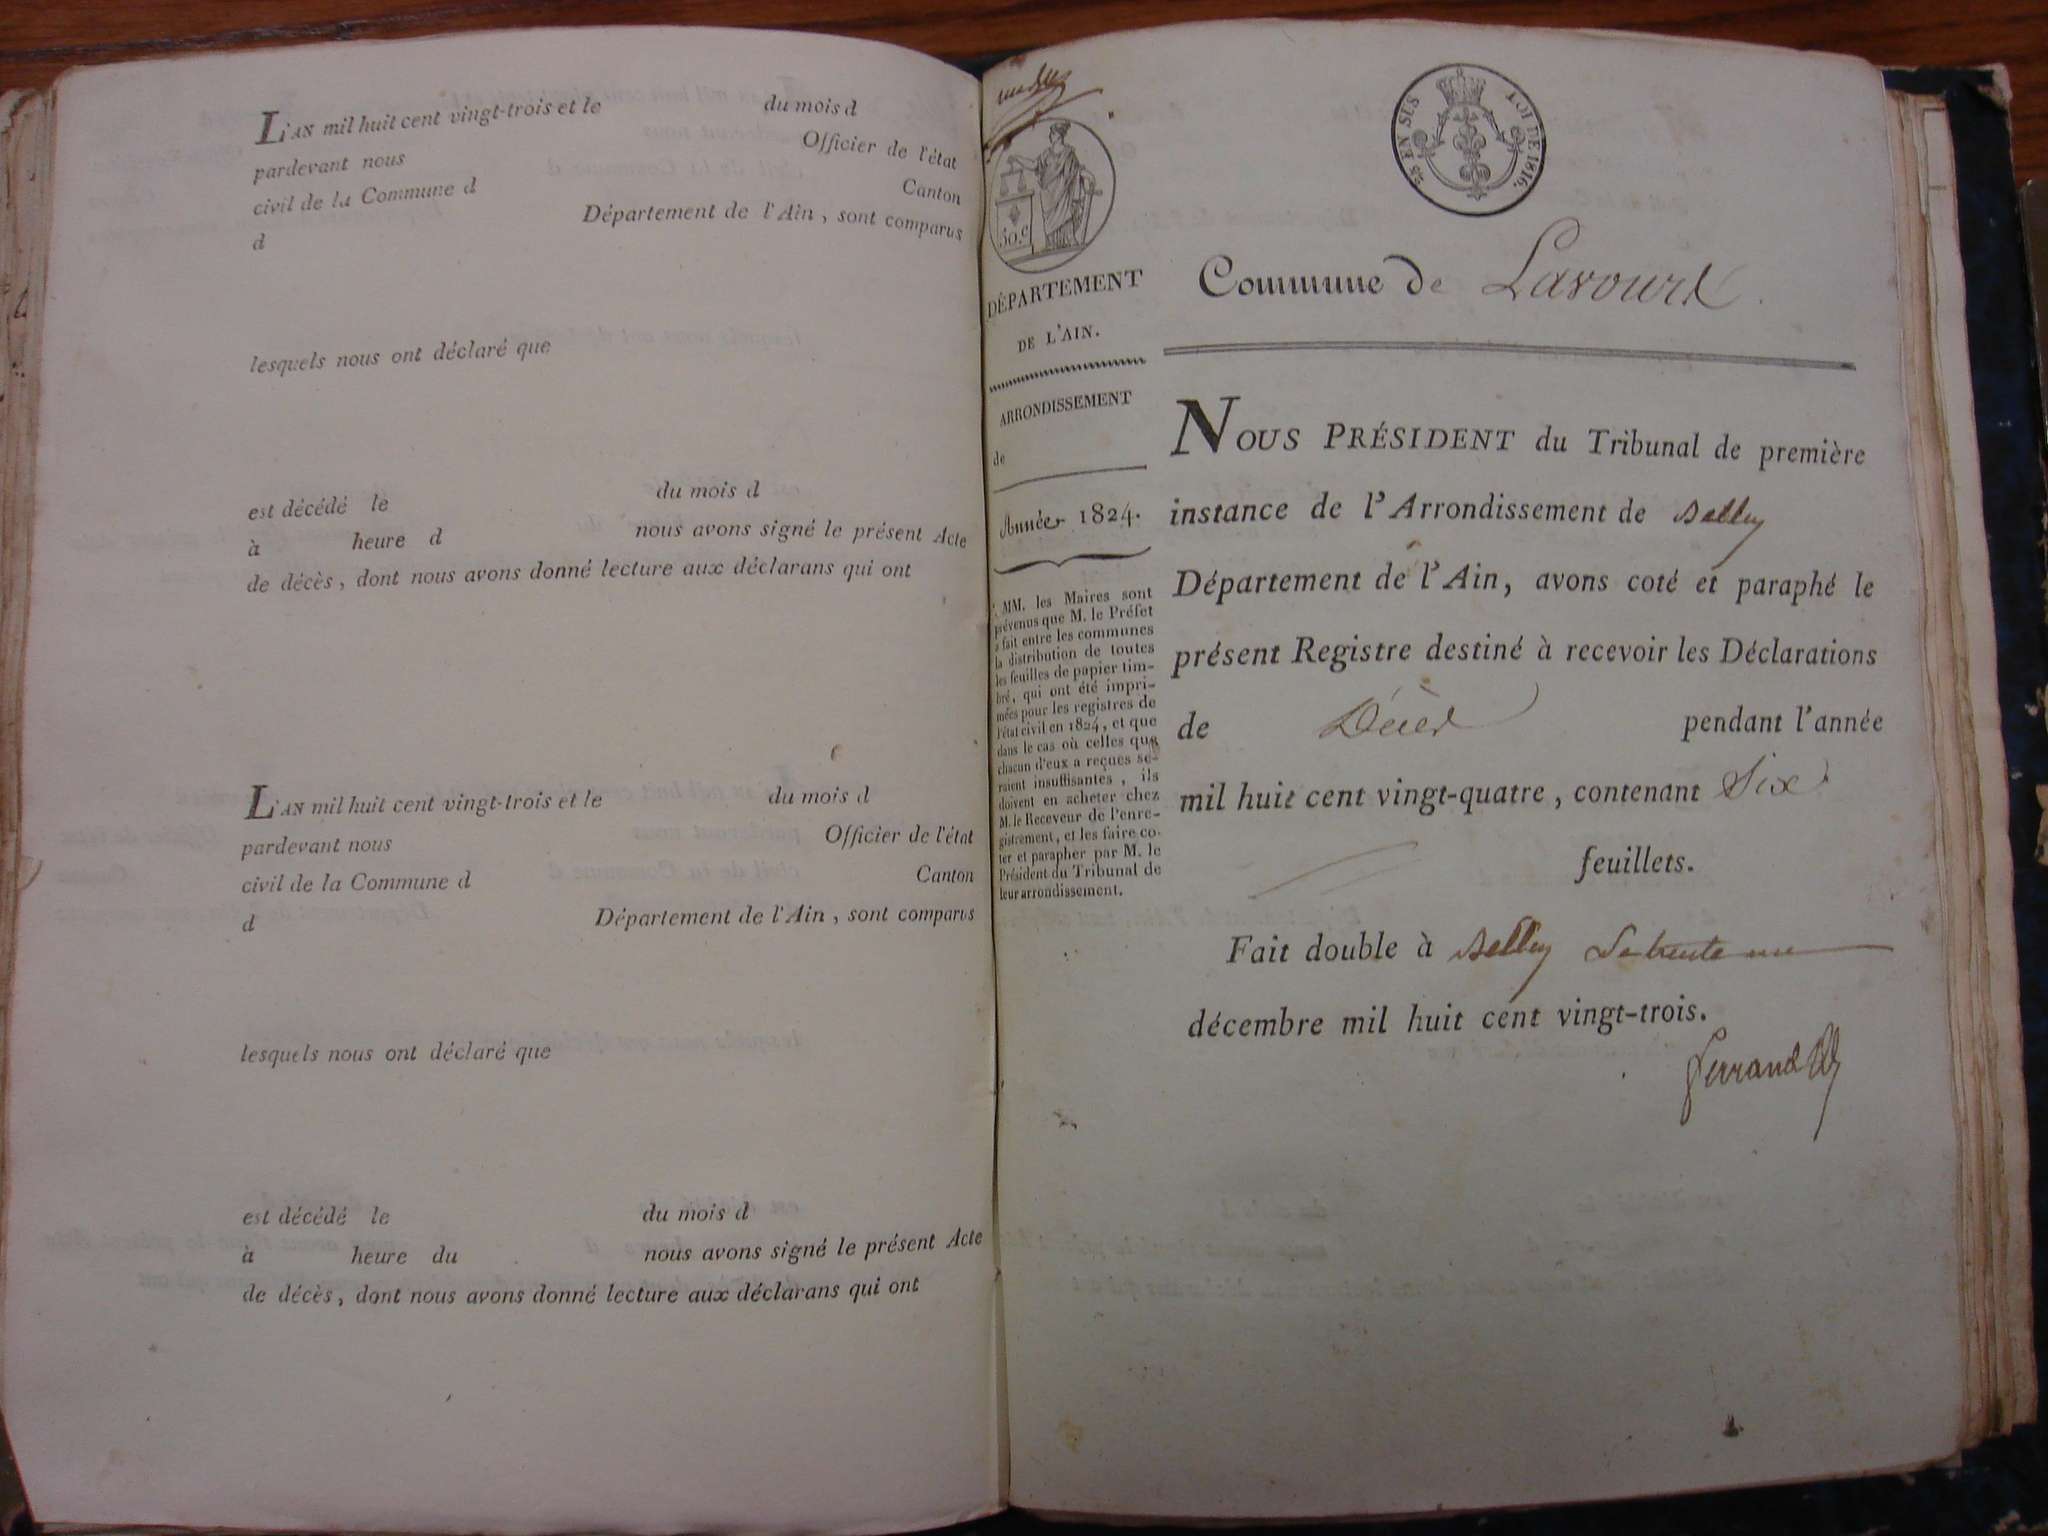 L'AN mil huit cent vingt-trois et le du mois d
pardevant nous Officier de l'état
civil de la Commune d Canton
d Département de l'Ain, sont comparus
lesquels nous ont déclaré que
est décédé le du mois d
à heure d nous avons signé le présent Acte
de décès, dont nous avons donné lecture aux déclarans qui ont
L'AN mil huit cent vingt-trois et le du mois d
pardevant nous Officier de l'état
civil de la Commune d Canton
d Département de l'Ain, sont comparus
lesquels nous ont déclaré que
est décédé le du mois d
à heure du nous avons signé le présent Acte
de décès, dont nous avons donné lecture aux déclarans qui ont
50.c
DÉPARTEMENT
DE L'AIN.
ARRONDISSEMENT
de
Année 1824.
MM. les Maires sont
prévenus que M. le Préfet
a fait entre les communes
la distribution de toutes
les feuilles de papier tim-
bré, qui ont été impri-
mées pour les registres de
l'état civil en 1824, et que
dans le cas où celles que
chacun d'eux a reçues se-
raient insuffisantes, ils
doivent en acheter chez
M. le Receveur de l'enre-
gistrement, et les faire co-
ter et parapher par M. le
Président du Tribunal de
leur arrondissement.
EN SUS LOI DE 1816.
Commune de Lavours
NOUS PRÉSIDENT du Tribunal de première
instance de l'Arrondissement de Belley
Département de l'Ain, avons coté et paraphé le
présent Registre destiné à recevoir les Déclarations
de Décès pendant l'année
mil huit cent vingt-quatre, contenant Six
feuillets.
Fait double à Belley Le trente un
décembre mil huit cent vingt-trois.